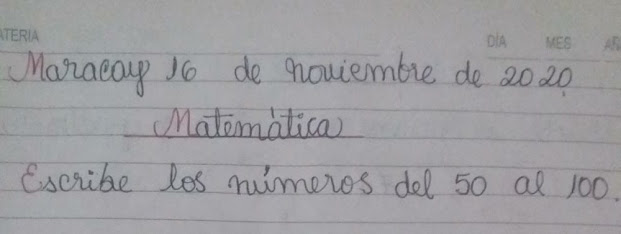 ATERIA DÍA MES AÑ
Maracay 16 de noviembre de 2020
Matemática
Escribe los números del 50 al 100.